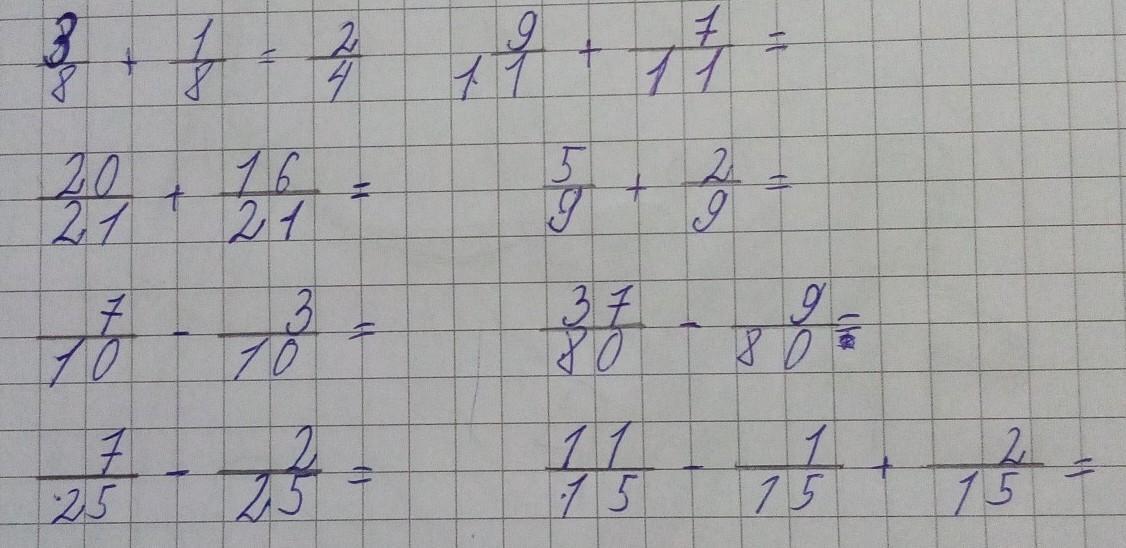 3/8 + 1/8 = 2/4 9/11 + 7/11 =
20/21 + 16/21 = 5/9 + 2/9 =
7/10 - 3/10 = 37/80 - 9/80 =
7/25 - 2/25 = 11/15 - 1/15 + 2/15 =